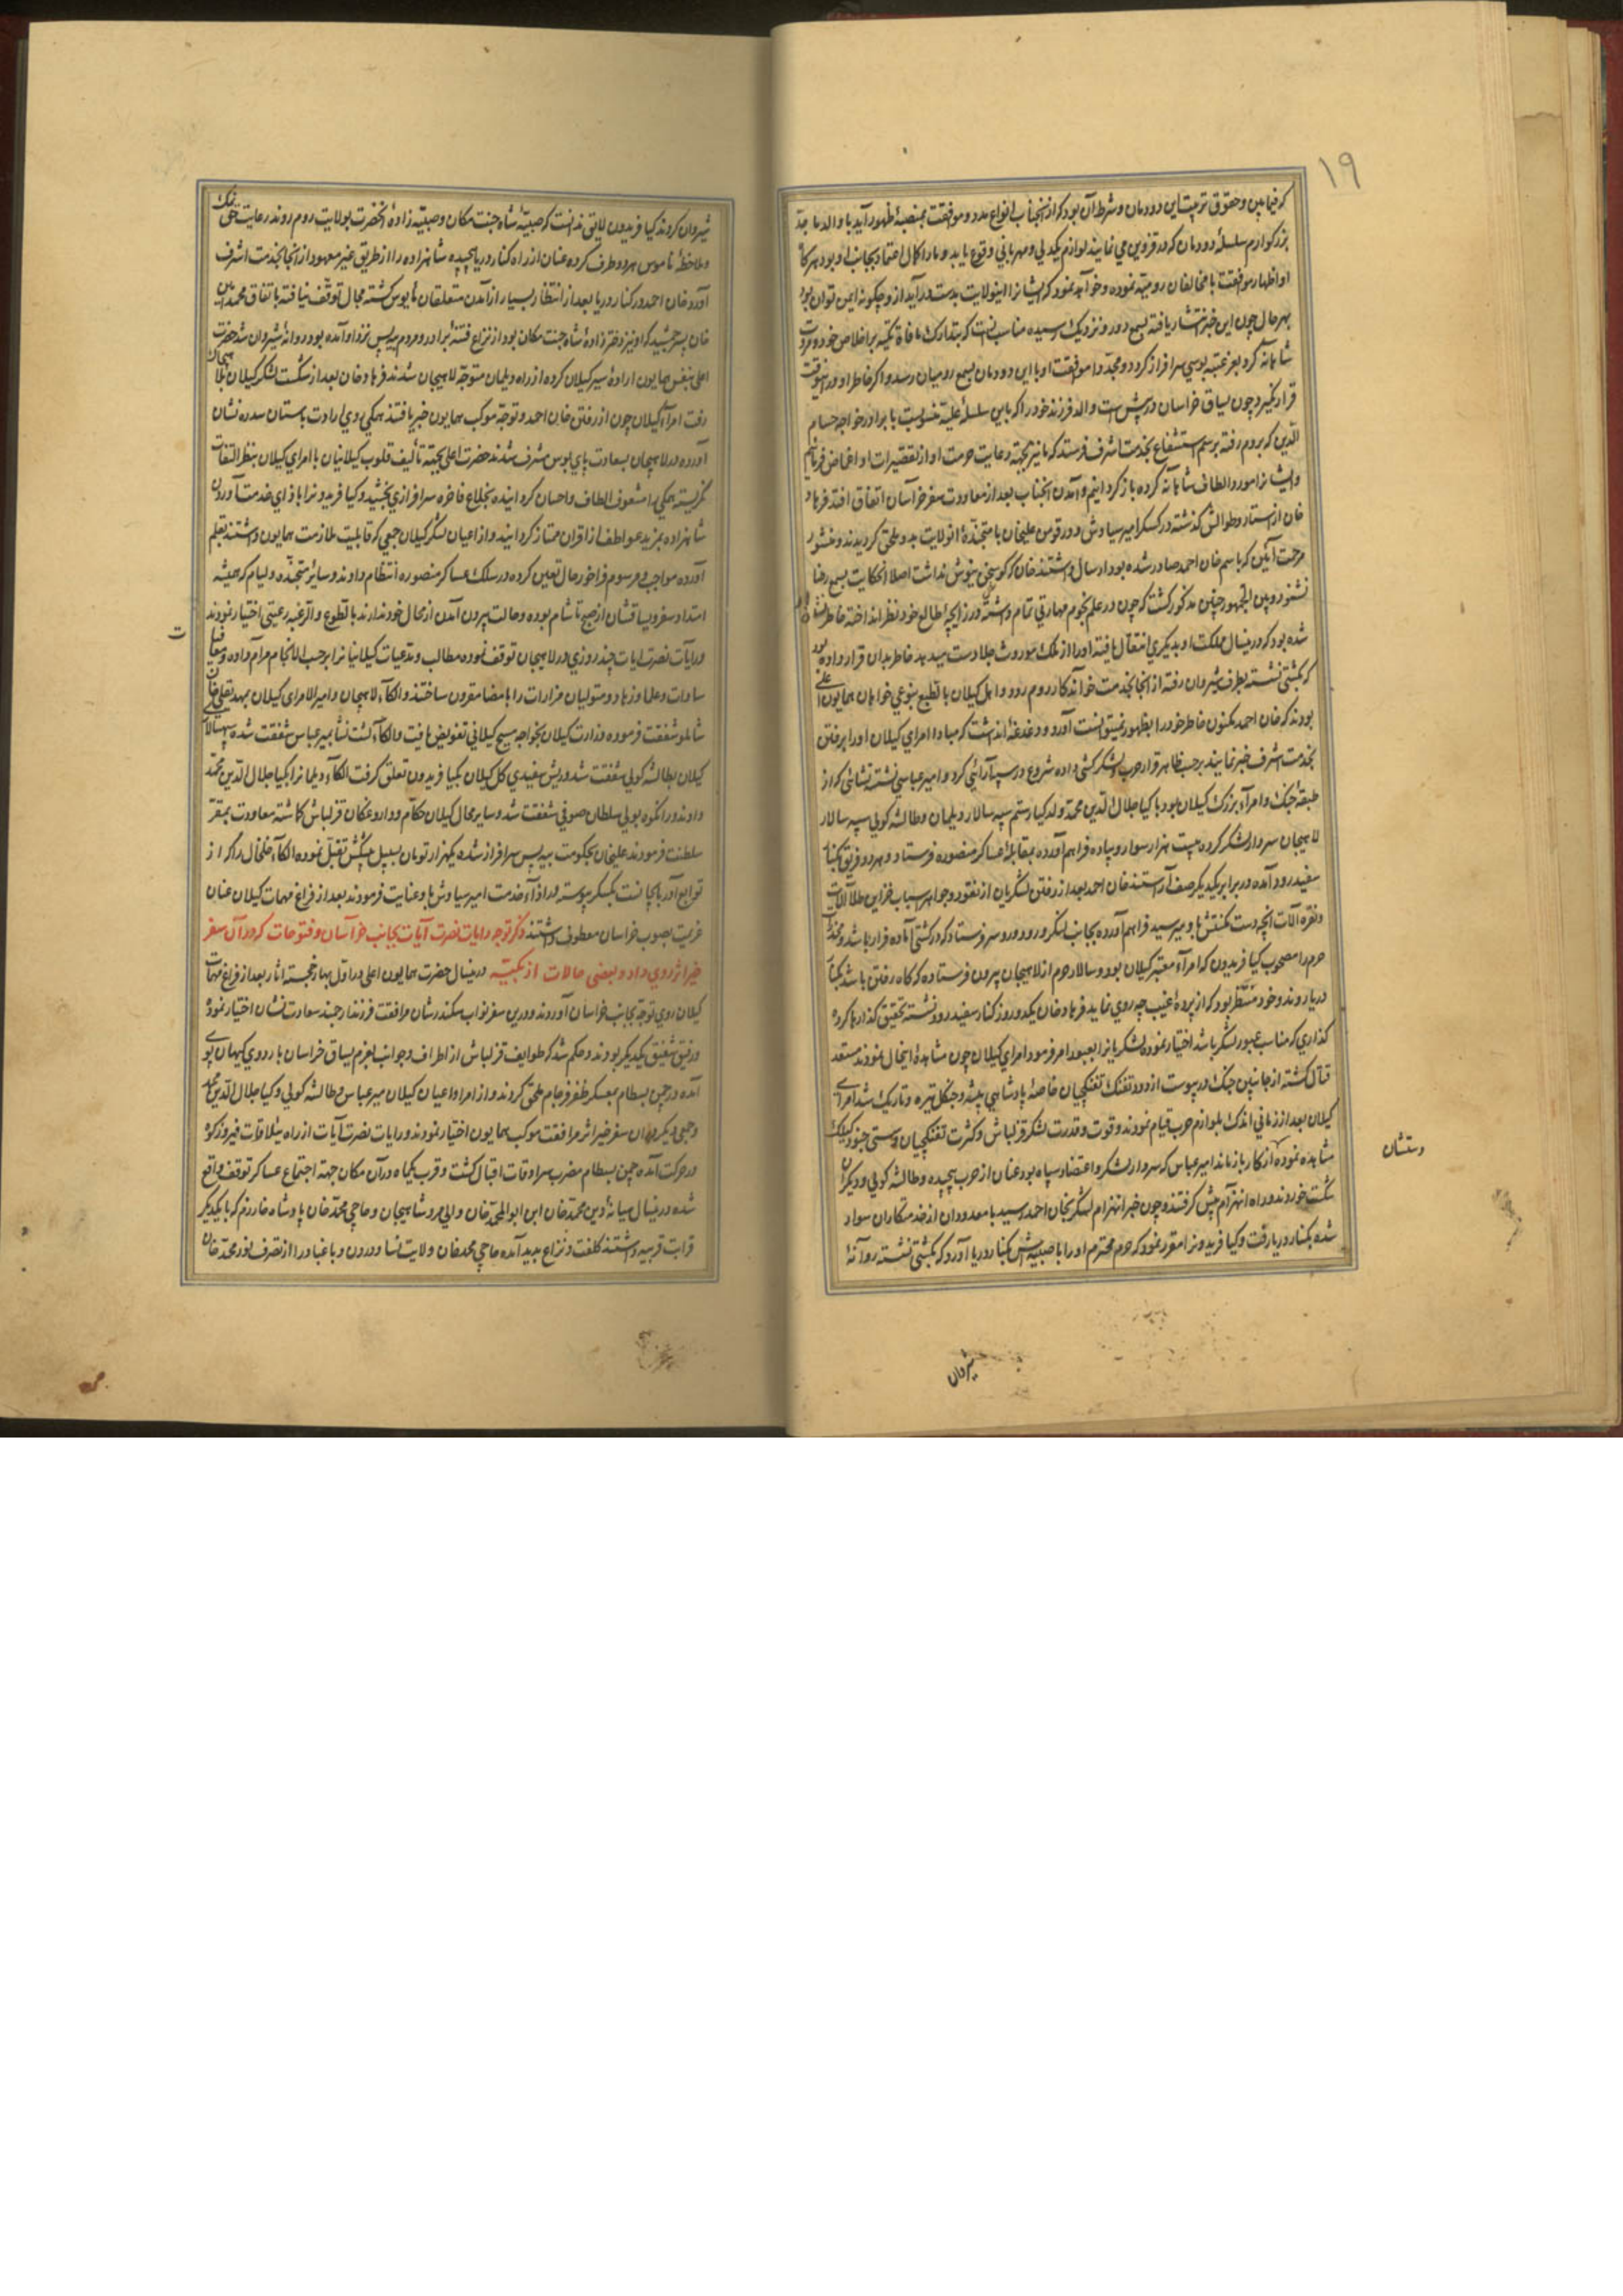 ۱۹
که فیمابین و حقوق تربیت این دودمان و شرط آن بود که از آنجناب انواع مدد و موافقت بمنصهٔ ظهور آید با والد ماجد
بزرگوارم سلسلهٔ دودمان که در قزوین می نمایند لوازم یکدلی و مهربانی وقوع یابد و ما را کمال اعتماد بجانب او بود هرگاه
او اظهار موافقت با مخالفان رومیه نموده و خواهد نمود که ایشانرا اینولایت بدست در آید از و چگونه ایمن توان بود
بهر حال چون این خبر انتشار یافته بسمع دور و نزدیک رسیده مناسب آنست که بتدارک مافات تکیه بر اخلاص خود و مروت
شاهانه کرده بعز عتبه بوسی سرافراز گردد و مجددا موافقت او با این دودمان بسمع رومیان رسد و اگر خاطر او در اینوقت
قرار نگیرد چون یساق خراسان در پیش است والد فرزند خود را که باین سلسلهٔ علیه منسوبست با برادر خواجه حسام
الدین که بروم رفته برسم استشفاع بخدمت اشرف فرستد که ما نیز بجهته رعایت حرمت او از تقصیرات او اغماض فرمائیم
و ایشانرا مورد الطاف شاهانه کرده باز گردانیم و آمدن آنجناب بعد از معاودت سفر خراسان اتفاق افتد فرهاد
خان از آستارا و طوالش گذشته در کسکر امیر سیاوش و در فومن علیخان با متجندهٔ آنولایت بدو ملحق گردیدند و منشور
مرحمت آیین که باسم خان احمد صادر شده بود ارسال داشتند خان که گوش سخن نیوش نداشت اصلا آنحکایت بسمع رضا
نشنود و بین الجمهور چنین مذکور گشت که چون در علم نجوم مهارتی تمام داشته در زایچهٔ طالع خود نظر انداخته خاطر نشان او
شده بود که در ینسال مملکت او بدیگری انتقال یافته او را از ملک موروث جلا دست میدهد خاطر بدان قرار داده بود
که بکشتی نشسته بطرف شیروان رفته از آنجا بخدمت خواندکار روم رود و اهل گیلان بالطبع بنوعی خواهان همایون اعلی
بودند که خان احمد مکنون خاطر خود را بظهور نمیتوانست آورد و دغدغه داشت که مبادا امرای گیلان او را بر فتن
بخدمت اشرف خبر نمایند بر حسب ظاهر قرار حرب و لشکرکشی داده شروع در سپاه آرائی کرد و امیر عباسی نشته نشائی که از
طبقهٔ جنک و امراء بزرک گیلان بود با کیا جلال الدین محمد ولد کیا رستم سپه سالار دیلمان و طالشه کولی سپه سالار
لاهیجان سردار لشکر کرده بیست هزار سوار و پیاده فراهم آورده بمقابلهٔ عساکر منصوره فرستاد و هر دو فریق بکنار
سفید رود آمده در برابر یکدیگر صف آراستند خان احمد بعد از رفتن لشکریان از نقود و جواهر و اسباب خزاین طلا آلات
و نقره آلات آنچه دست مکنتش باو میرسید فراهم آورده بجانب لنگرود و رودسر فرستاد که در کشتی آماده قرار باشد و مخدرات
حرم را مصحوب کیا فریدون که امراء معتبر گیلان بود و سالار حرم از لاهیجان بیرون فرستاده که گاه رفتن باشد بکنار
دریا روند و خود منتظر بود که از پردهٔ غیب چه روی نماید فرهاد خان یکدو روز کنار سفید رود نشسته تحقیق گذارها کرده
گذاری که مناسب عبور لشکر باشد اختیار نموده لشکریانرا بعبور امر فرمود امرای گیلان چون مشاهدهٔ اینحال نمودند مستعد
قتال گشته از جانبین جنک در پیوست از دود تفنک تفنکچیان خاصهٔ پادشاهی بیشه و جنگل تیره و تاریک شد امرای
گیلان بعد از زمانی اندک بلوازم حرب قیام نمودند و قوت و قدرت لشکر قزلباش و کثرت تفنکچیان و سستی جنود گیلک
مشاهده نموده از کار باز ماند امیر عباس که سردار لشکر و اعتضاد سپاه بود عنان از حرب پیچیده و طالشه کولی و دیگران
دستشان
شکست خورده راه انهزام پیش گرفتند و چون خبر انهزام لشکر بخان احمد رسید با معدودان از خدمتکاران سوار
شده بکنار دریا رفت و کیا فریدونرا مقرر نمود که حرم محترم او را با صبیه اش بکنار دریا آورد که بکشتی نشسته روانهٔ
شیروان
شیروان کردند کیا فریدون لایق ندانست که صبیهٔ شاه جنت مکان و صبیه زادهٔ آنحضرت بولایت روم روند رعایت حق نمک
و ملاحظهٔ ناموس هر دو طرف کرده عنان از راه کنار دریا پیچیده شاهزاده را از طریق غیر معهود از آنجا بخدمت اشرف
آورد خان احمد در کنار دریا بعد از انتظار بسیار از آمدن متعلقان مأیوس گشته مجال توقف نیافته باتفاق محمد امین
خان پسر جمشید که او نیز دختر زادهٔ شاه جنت مکان بود و از نزاع فتنهٔ برادر و مردم بیه پس نزد او آمده بود روانهٔ شیروان شد حضرت
اعلی بنفس همایون ارادهٔ سیر گیلان کرده از راه دیلمان متوجه لاهیجان شدند فرهاد خان بعد از شکست لشکر گیلان بلاهیجان
رفت امراء گیلان چون از رفتن خان احمد و توجه موکب همایون خبر یافتند همکی روی ارادت باستان سدره نشان
آورده در لاهیجان بسعادت پای بوس مشرف شدند حضرت اعلی بجهته تألیف قلوب گیلانیان با امرای گیلان بنظر التفات
نگریسته همکی را مشعوف الطاف و احسان گردانیده بخلاع فاخره سرافرازی بخشید و کیا فریدونرا بازای خدمت آوردن
شاهزاده بمزید عواطف از اقران ممتاز گردانید و از اعیان لشکر گیلان جمعی که قابلیت ملازمت همایون داشتند بقلم
آورده مواجب و مرسوم فراخور حال تعیین کرده در سلک عساکر منصوره انتظام دادند و سایر متجنده دلیام که همیشه
امتداد سفر و یساقشان از صبح تا شام بوده و حالت بیرون آمدن از محال خود ندارند بالطوع والرغبه رعیتی اختیار نمودند
ت
و رایات نصرت ایات چند روزی در لاهیجان توقف نموده مطالب و مدعیات گیلانیانرا بر حسب الانجام مرام داده وظایف
سادات و علما و زهاد و متولیان مزارات را بامضا مقرون ساختند و الکاء لاهیجان و امیر الامرای گیلان بمهدیقلی خان
شاملو شفقت فرموده وزارت گیلان بخواجه مسیح گیلانی تفویض یافت و الکاء لشت نشا بمیر عباس شفقت شده سپهسالاری
گیلان بطالشه کولی شفقت شد و ریش سفیدی کل گیلان بکیا فریدون تعلق گرفت الکاء دیلمانرا بکیا جلال الدین محمد
دادند و رانکوه بولی سلطان صوفی شفقت شد و سایر محال گیلان حکام و داروغکان قزلباش گماشته معاودت بمقر
سلطنت فرمودند علیخان بحکومت بیه پس سرافراز شده یکهزار تومان بسبیل پیشکش تقبل نموده الکاء خلخال را که از
توابع آذربایجانست بکسکر پیوسته در ازاء خدمت امیر سیاوش باو عنایت فرمودند بعد از فراغ مهمات گیلان عنان
عزیمت بصوب خراسان معطوف داشتند ذکر توجه رایات نصرت آیات بجانب خراسان و فتوحات که در آن سفر
خیر اثر روی داد و بعضی حالات ازبکیه در ینسال حضرت همایون اعلی در اول بهار خجسته اثار بعد از فراغ مهمات
گیلان روی توجه بجانب خراسان آوردند و درین سفر نواب سکندر شان مرافقت فرزند ارجمند سعادت نشان اختیار نموده
و رفیق شفیق یکدیگر بودند و حکم شد که طوایف قزلباش از اطراف و جوانب بعزم یساق خراسان باردوی کیهان پوی
آمده در چمن بسطام بمعسکر ظفر فرجام ملحق گردند و از امرا و اعیان گیلان میر عباس و طالشه کولی و کیا جلال الدین محمد
و جمعی دیگر در آن سفر خیر اثر مرافقت موکب همایون اختیار نمودند و رایات نصرت آیات از راه ییلاقات فیروزکوه
در حرکت آمده چمن بسطام مضرب سرادقات اقبال گشت و قرب یکماه در آن مکان جهته اجتماع عساکر توقف واقع
شده در ینسال میانهٔ دین محمد خان ابن ابوالمحمد خان والی مرو شاهیجان و حاجی محمد خان پادشاه خوارزم که با یکدیگر
قرابت قریبه داشتند کلفت و نزاع پدید آمده حاجی محمد خان ولایت نسا و درون و باغباد را از تصرف نور محمد خان